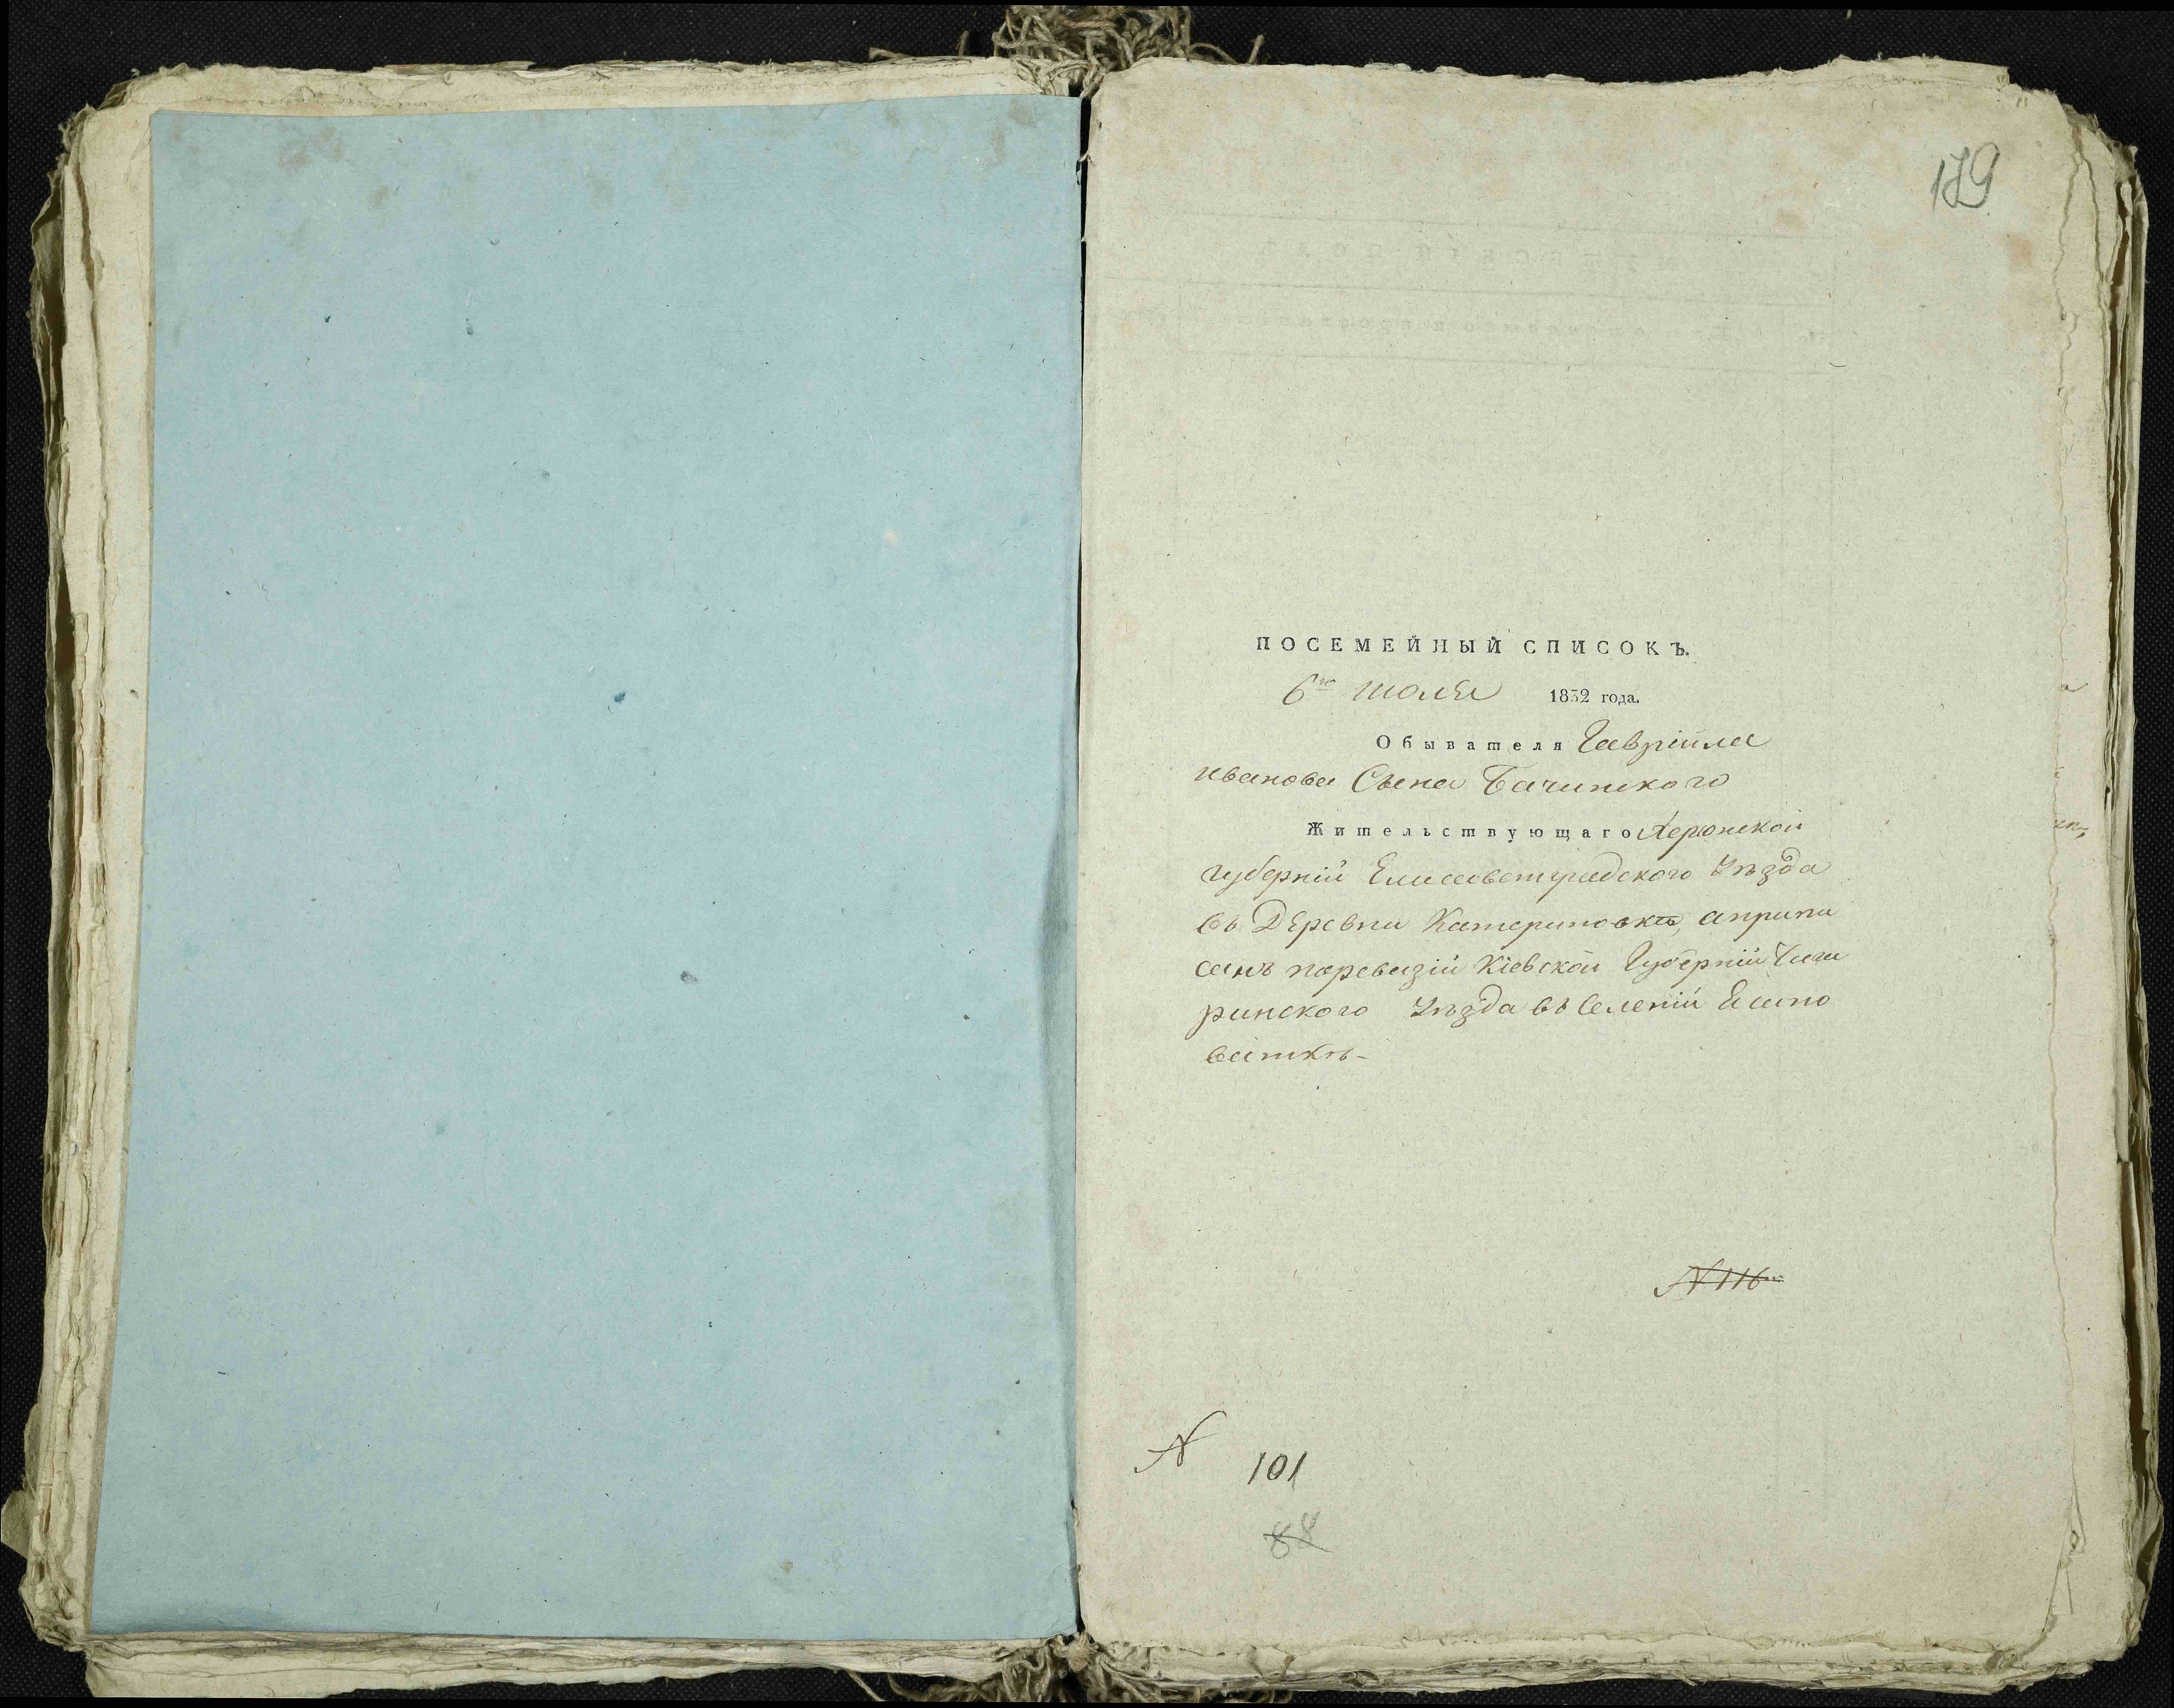 179
ПОСЕМЕЙНЫЙ СПИСОКЪ.
6го июля 1832 года.
Обывателя Гаврійла
иванова Сына Бачинского
Жительствующаго Херсонской
губерніи Елисаветградского Уѣзда
въ Деревни Катериновкѣ, априпи
санъ поревизіи Кіевской Губерніи Чиги
ринского Уѣзда въ Селеніи
N 116
N 101
88